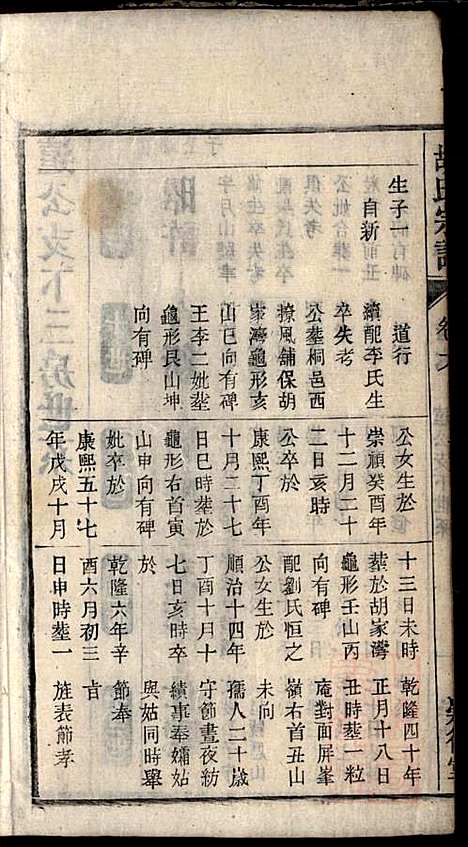 氏宗譜
卷
生子一
自新
道行
續配李氏生
卒失考
公塟桐邑西
撩風舖保胡
家灣龜形亥
山巳向有碑
王李二妣塟
龜形艮山坤
向有碑
公女生於
崇禎癸酉年
十二月二十
二日亥時
公卒於
康熙丁酉年
十月二十七
日巳時塟於
龜形右首寅
山申向有碑
妣卒於
康熙五十七
年戊戌十月
十三日未時
塟於胡家灣
龜形壬山丙
向有碑
配劉氏恒之
公女生於
順治十四年
丁酉十月十
七日亥時卒
於
乾隆六年辛
酉六月初三
日申時塟一
乾隆四十年
正月十八日
丑時塟一粒
庵對面屏峯
嶺右首丑山
未向
孺人二十歲
守節晝夜紡
績事奉孀姑
與姑同時舉
節奉
旨
旌表節孝